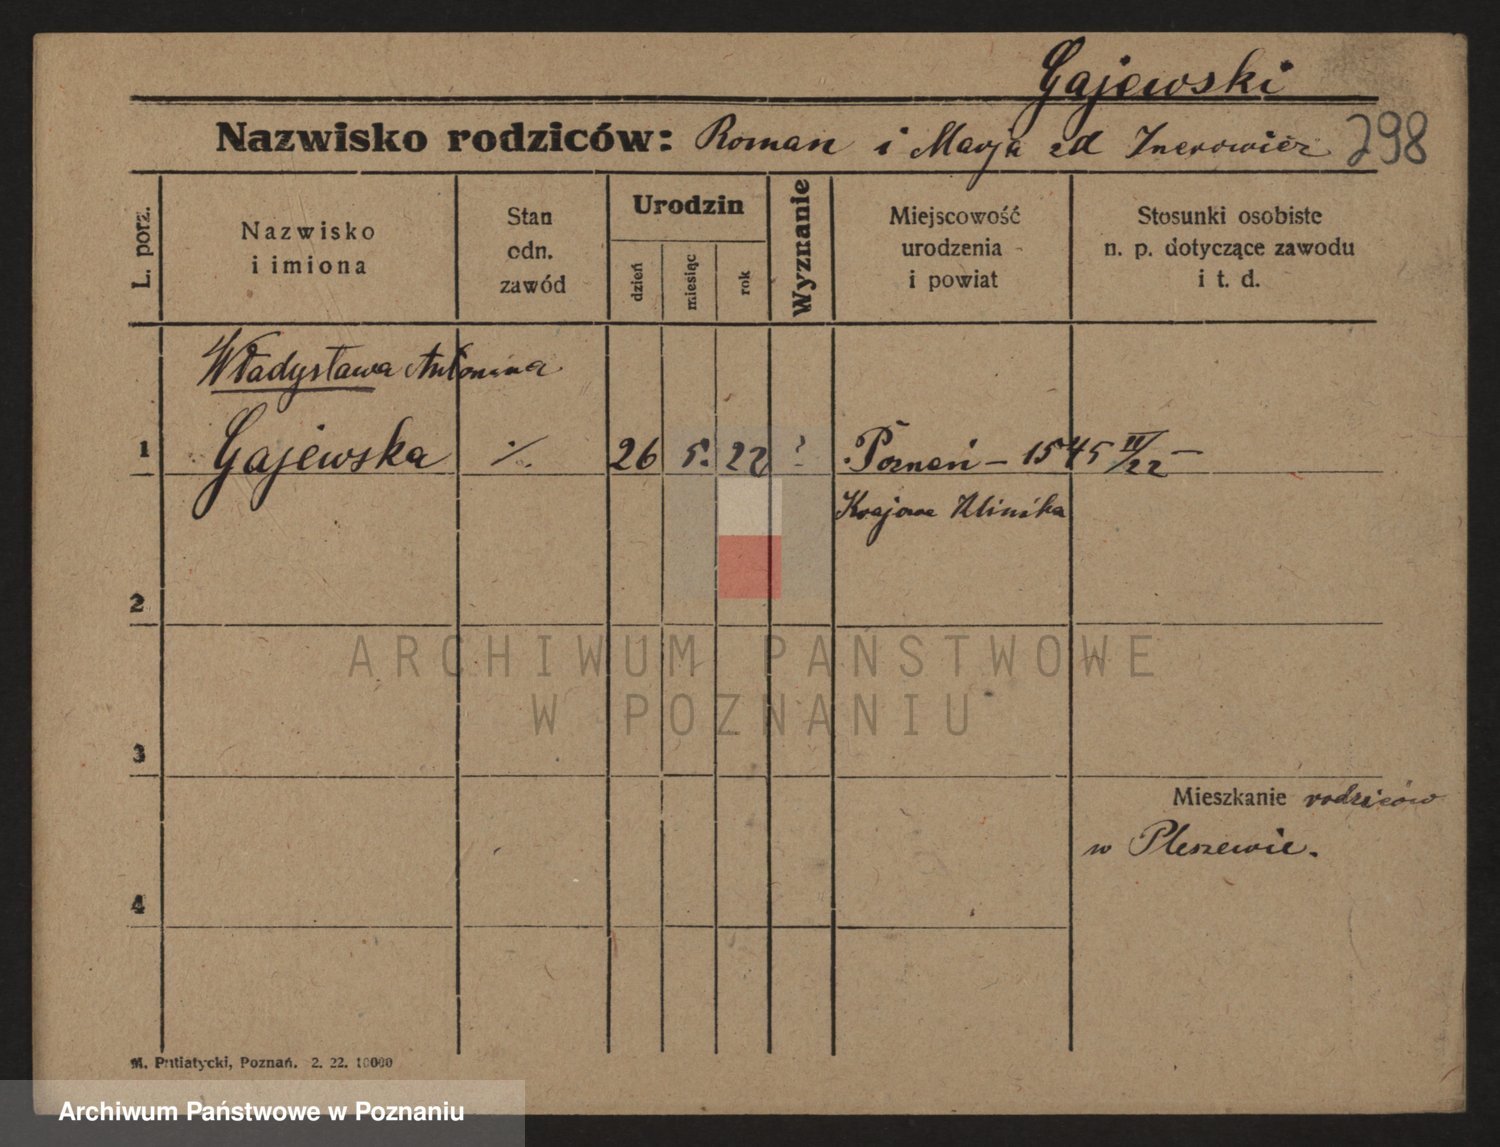 Gajewski
Nazwisko rodziców: Roman i Marja zd
298
L. porz.
Nazwisko
i imiona
Stan
odn.
zawód
Urodzin
dzień
miesiąc
rok
Wyznanie
Miejscowość
urodzenia
i powiat
Stosunki osobiste
n. p. dotyczące zawodu
i t. d.
Władysława Antonina
1 Gajewska ./. 26 5. 22 ? Poznań – 1545 II/22 –
Krajowa Klinika
2
ARCHIWUM PAŃSTWOWE
W POZNANIU
3
Mieszkanie rodziców
w Pleszewie.
4
M. Putiatycki, Poznań. 2. 22. 10000
Archiwum Państwowe w Poznaniu